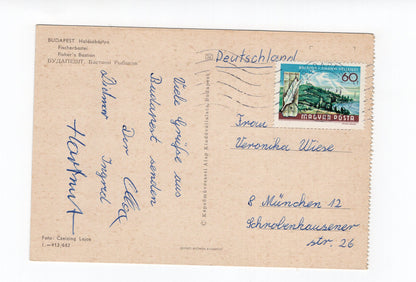 BUDAPEST Halászbástya
Fischerbastei
Fisher's Bastion
БУДАПЕШТ, Бастион Рыбаков
Viele Grüße aus
Budapest senden
Ingrid
Hartmut
Foto: Czeizing Lajos
Képzőművészeti Alap Kiadóvállalata, Budapest
Deutschland
60
MAGYAR POSTA
Frau
Veronika Wiese
8 München 12
Schrobenhausener
str. 26